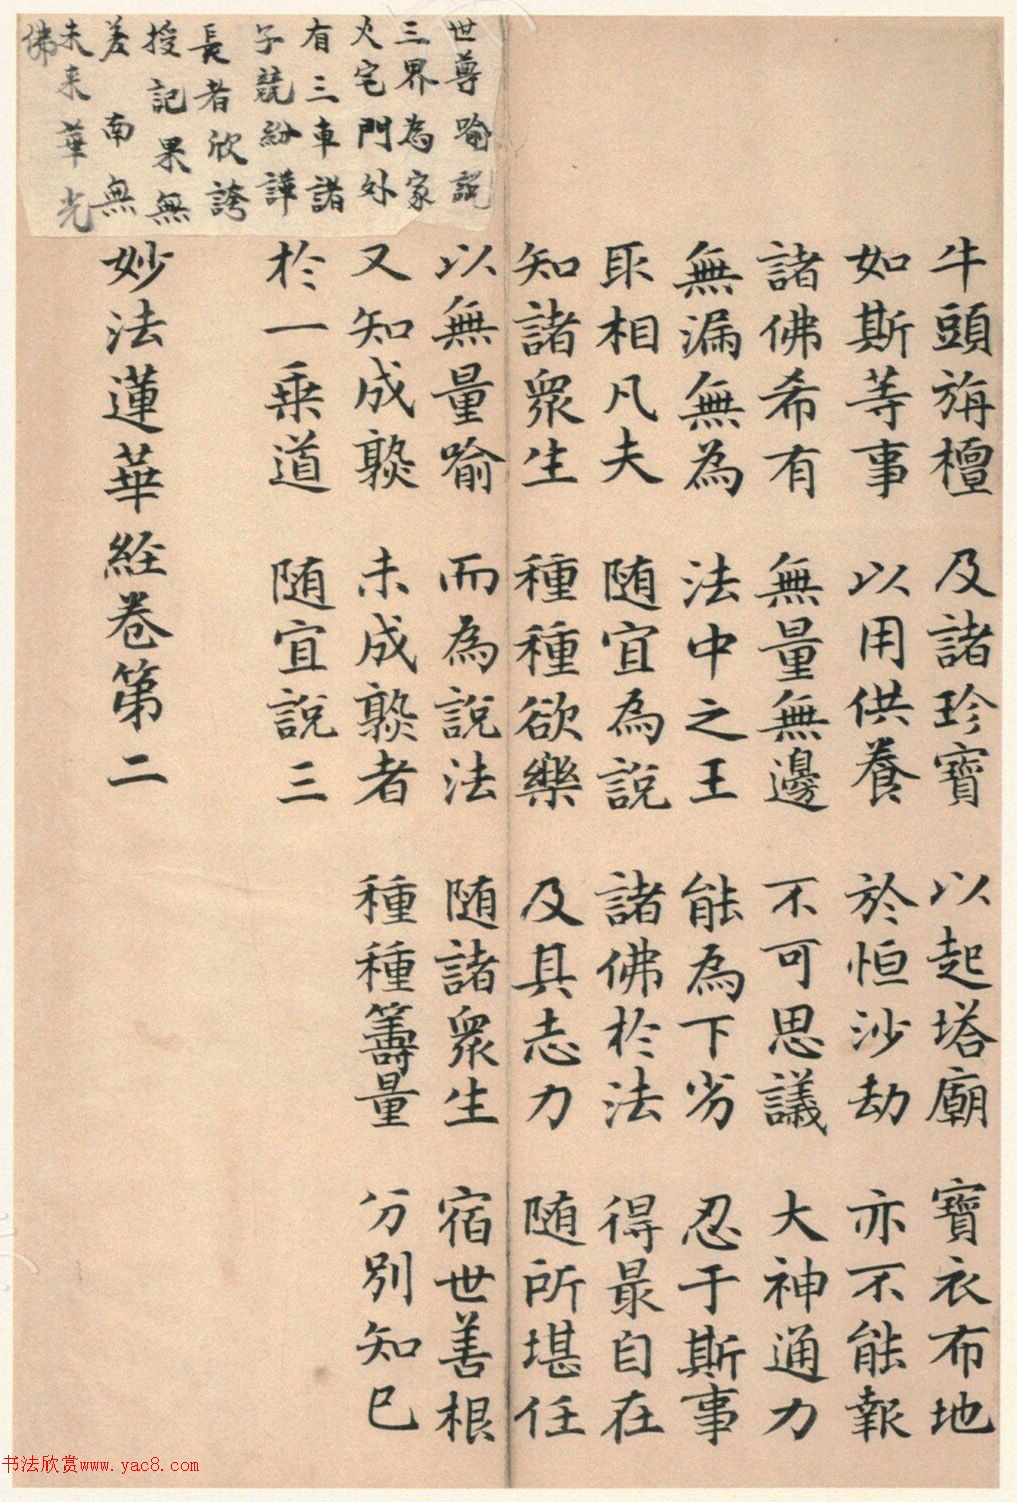 牛頭旃檀 及諸珍寶 以起塔廟 寶衣布地
如斯等事 以用供養 於恒沙劫 亦不能報
諸佛希有 無量無邊 不可思議 大神通力
無漏無為 法中之王 能為下劣 忍于斯事
取相凡夫 随宜為說 諸佛於法 得最自在
知諸眾生 種種欲樂 及其志力 随所堪任
以無量喻 而為說法 随諸眾生 宿世善根
又知成熟 未成熟者 種種籌量 分別知已
於一乘道 随宜說三
妙法蓮華經卷第二
世尊喻說
三界為家
火宅門外
有三車諸
子競紛譁
長者欣誇
授記果無
差 南無
未来華光
佛
书法欣赏www.yac8.com